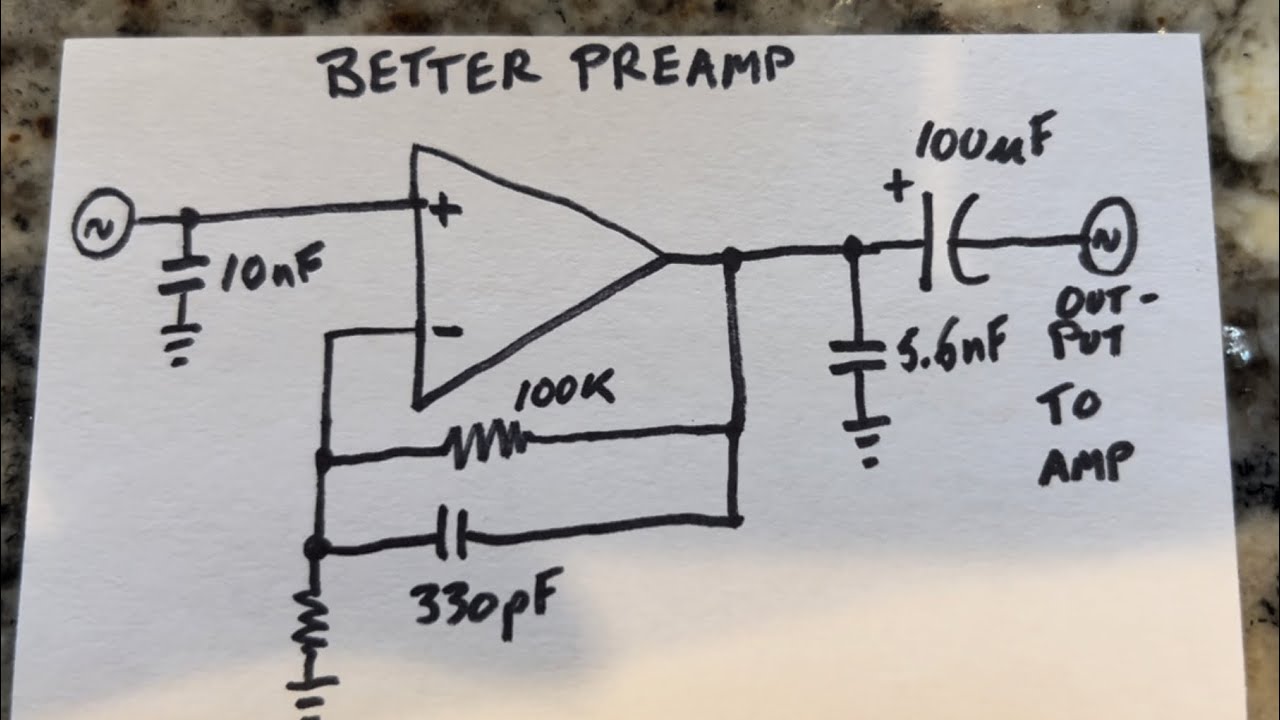 BETTER PREAMP
100uF
+
~
+
~
10nF
OUT-
PUT
TO
AMP
-
5.6nF
100K
330pF